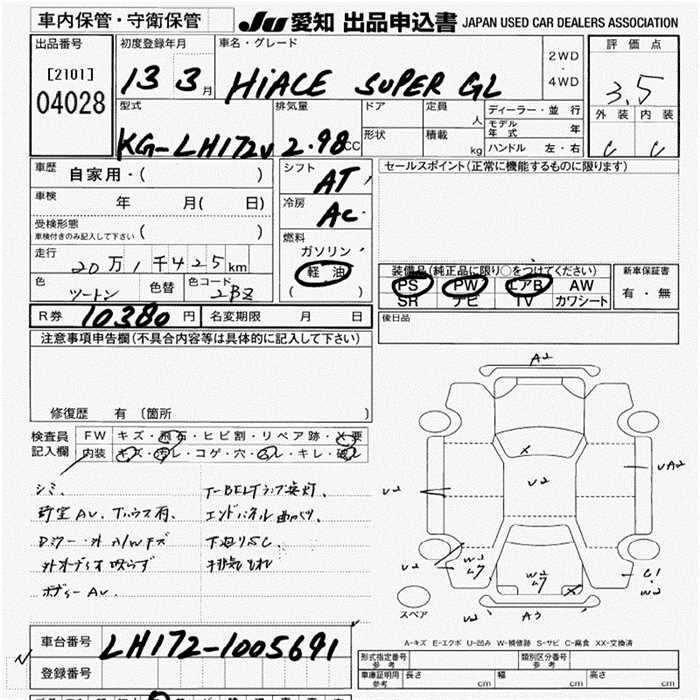 車内保管・守衛保管
JU 愛知 出品申込書 JAPAN USED CAR DEALERS ASSOCIATION
出品番号
[2101]
04028
初度登録年月
13 3月
車名・グレード
HiACE SUPER GL
2WD
・
4WD
評価点
3.5
外装 内装
C C
型式
KG-LH172V
排気量
2.98 CC
ドア
形状
定員
人
積載
kg
ディーラー・並行
モデル年式 年
ハンドル 左・右
車歴
自家用・( )
車検
年 月( 日)
受検形態
車検付きのみ記入して下さい ( )
走行
20万1千425km
色
ツートン
色替
色コード
2BZ
シフト
AT
冷房
AC
燃料
ガソリン・
軽油
( )
セールスポイント(正常に機能するものに限ります)
装備品(純正品に限り○をつけてください)
PS PW エアB AW
SR ナビ TV カワシート
新車保証書
有・無
R券 10380円
名変期限 月 日
後日品
注意事項申告欄(不具合内容等は具体的に記入して下さい)
修復歴 有 〔箇所 〕
検査員記入欄
FW キズ・飛石・ヒビ割・リペア跡・X要
内装 キズ・汚レ・コゲ・穴・スレ・キレ・破レ
シミ、
T-BELTランプ点灯.
ボディー AU.
A2
U2
UA2
X
U2
U2
U2
W2
W2
C1
W2
X
A3
スペア
A-キズ E-エクボ U-凹み W-補修跡 S-サビ C-腐食 XX-交換済
車台番号 LH172-1005691
登録番号
形式指定番号 参考
類別区分番号 参考
車庫証明用 参考
長さ cm
幅 cm
高さ cm